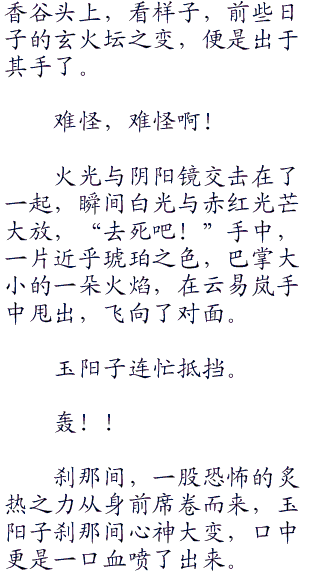 香谷头上，看样子，前些日
子的玄火坛之变，便是出于
其手了。
难怪，难怪啊！
火光与阴阳镜交击在了
一起，瞬间白光与赤红光芒
大放，“去死吧！”手中，
一片近乎琥珀之色，巴掌大
小的一朵火焰，在云易岚手
中甩出，飞向了对面。
玉阳子连忙抵挡。
轰！！
刹那间，一股恐怖的炙
热之力从身前席卷而来，玉
阳子刹那间心神大变，口中
更是一口血喷了出来。